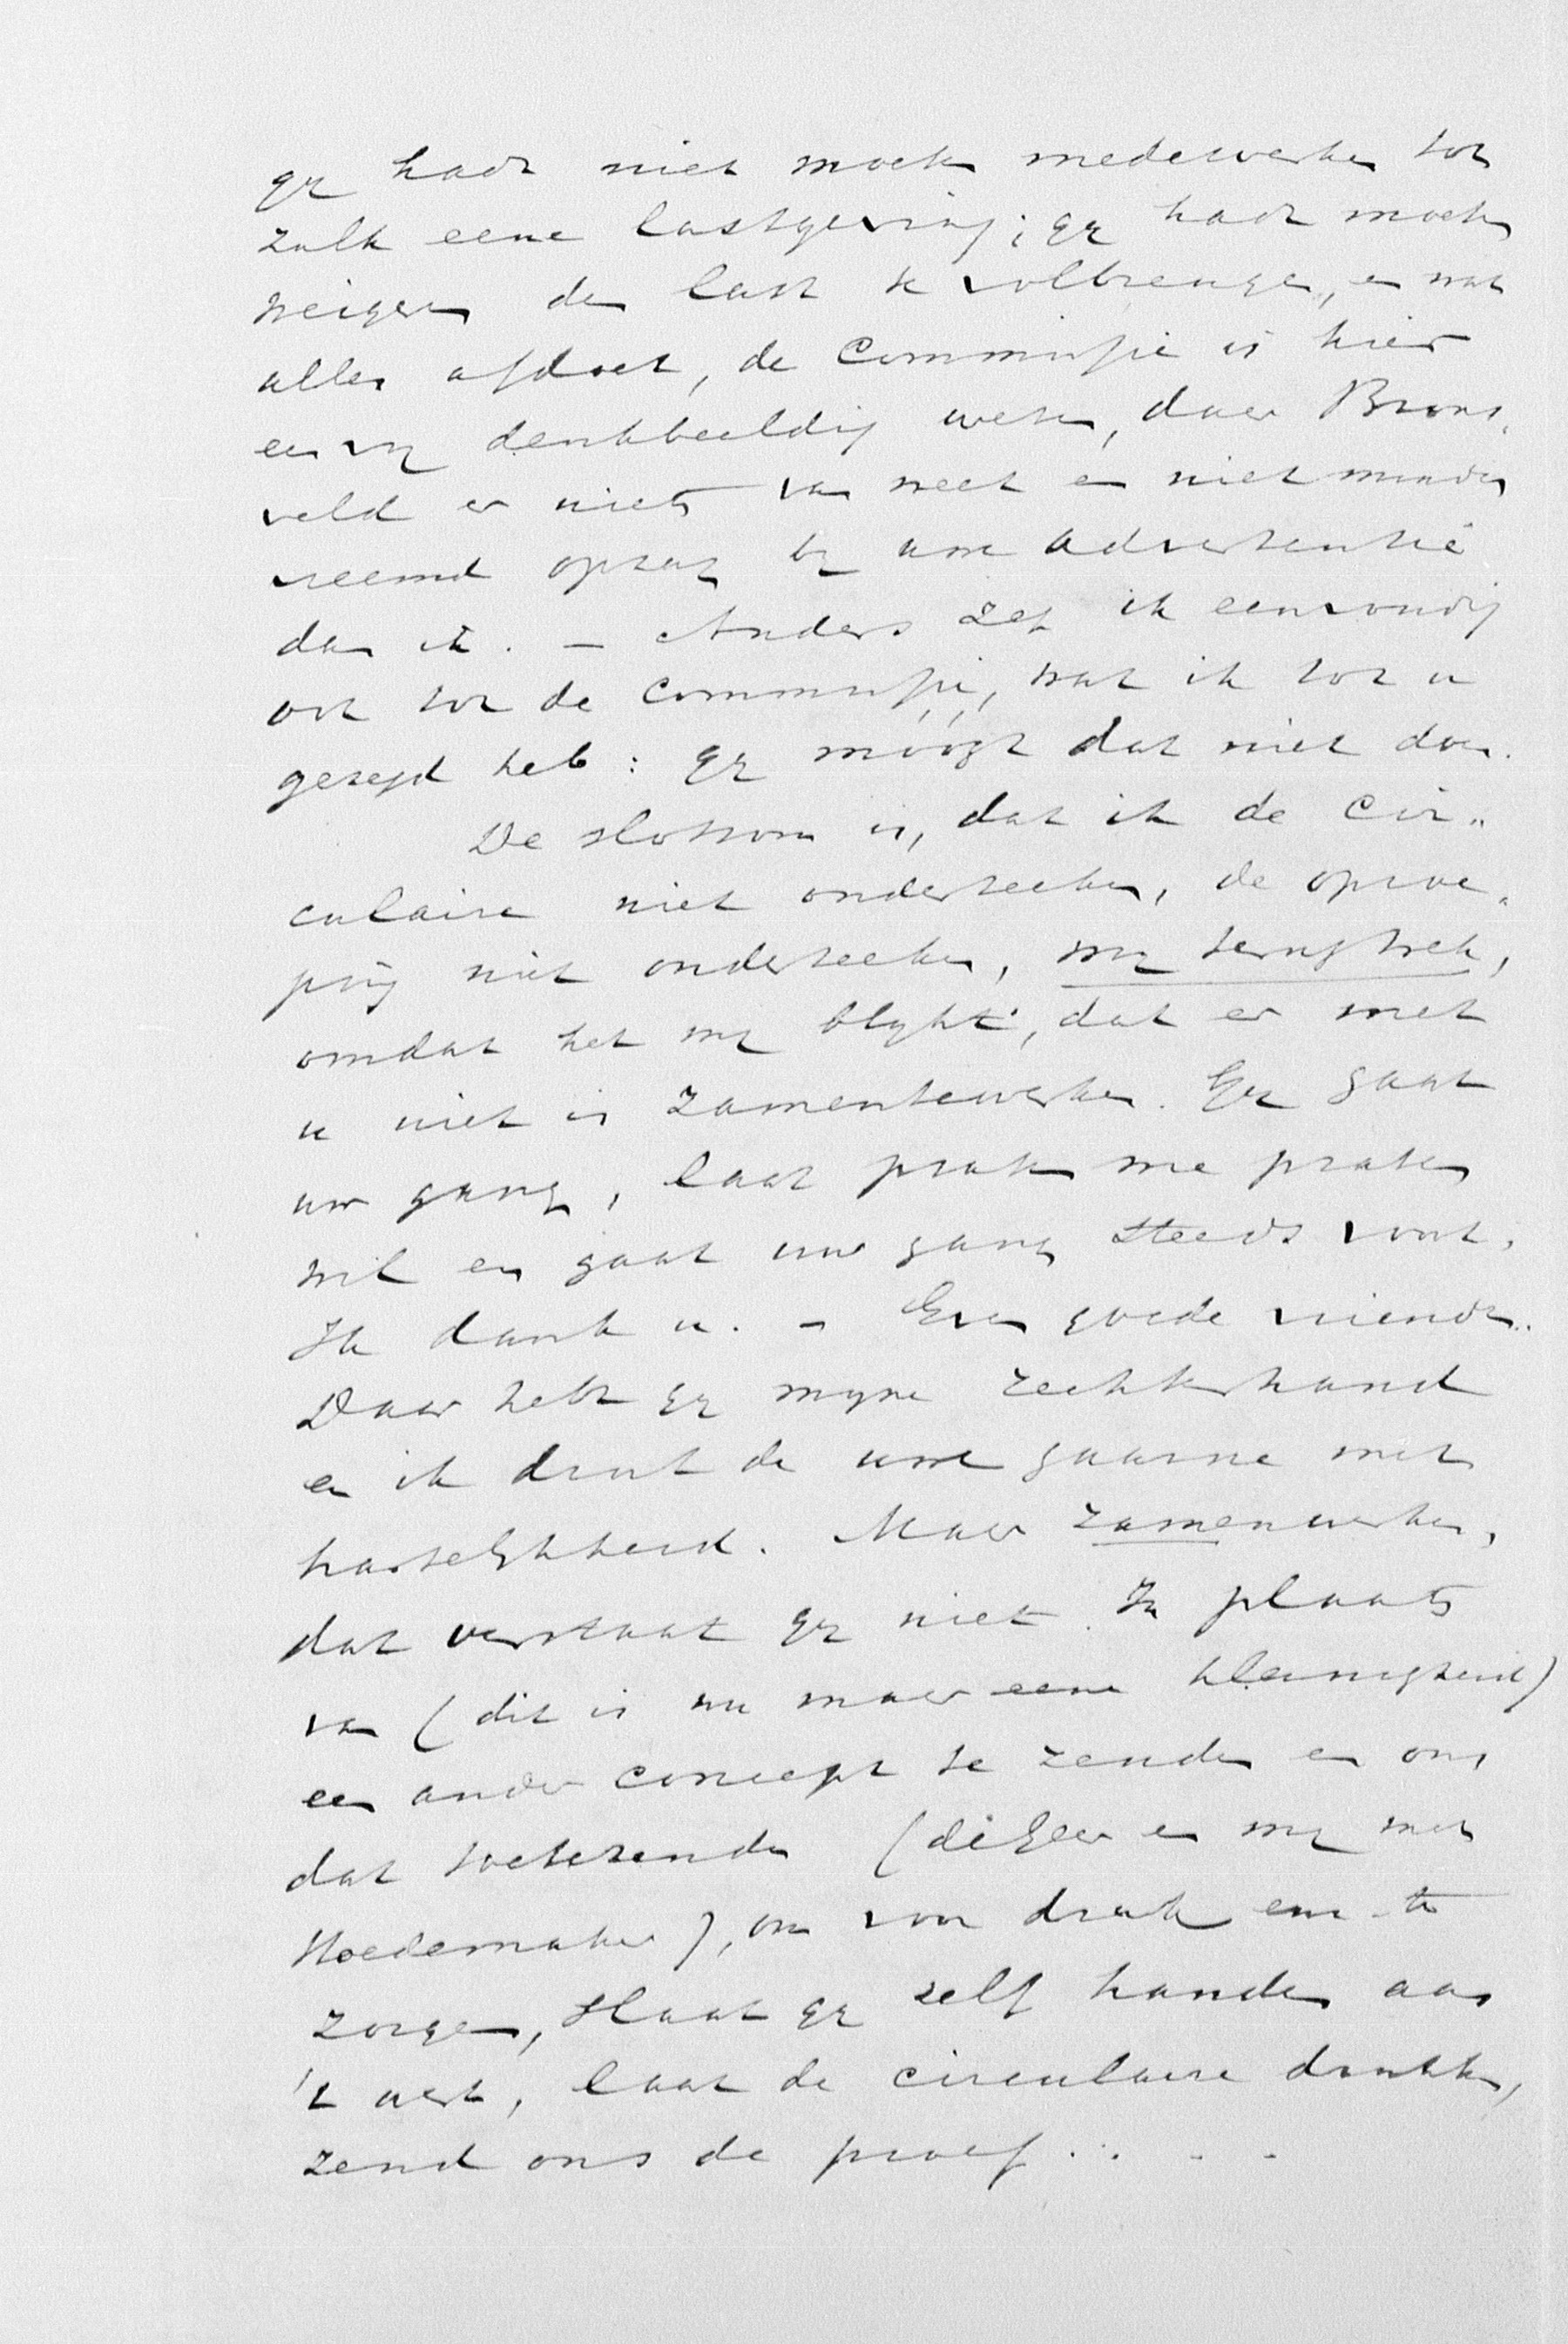 Gy hadt niet moeten medewerken tot
zulk eene lastgeving; Gy hadt moeten
weigeren den last te volbrengen, en wat
alles afdoet, de Commissie is hier
een denkbeeldig wezen, daar Brons„
veld er niets van weet en niet minder
vreemd opzag by uwe advertentie
dan ik. – Anders zeg ik eenvoudig
ook tot de Commissie, wat ik tot u
gezegd heb: Gy móógt dat niet doen.
De slotsom is, dat ik de cir„
culaire niet onderteeken, de oproe„
ping niet onderteeken, my terugtrek,
omdat het my blykt, dat er met
u niet is zamentewerken. Gy gaat
uw gang, laat praten wie praten
wil en gaat uw gang steeds voort.
Ik dank u. – Even goede vrienden.
Daar hebt Gy myne rechterhand
en ik druk de uwe gaarne met
hartelykheid. Maar zamenwerken,
dat verstaat Gy niet. In plaats
van (dit is nu maar eene kleinigheid)
een ander concept te zenden en ons
dat toetezenden (de Geer en my met
Hoedemaker), om voor druk enz. te
zorgen, slaat Gy zelf handen aan
't werk, laat de circulaire drukken,
zend ons de proef . . . .